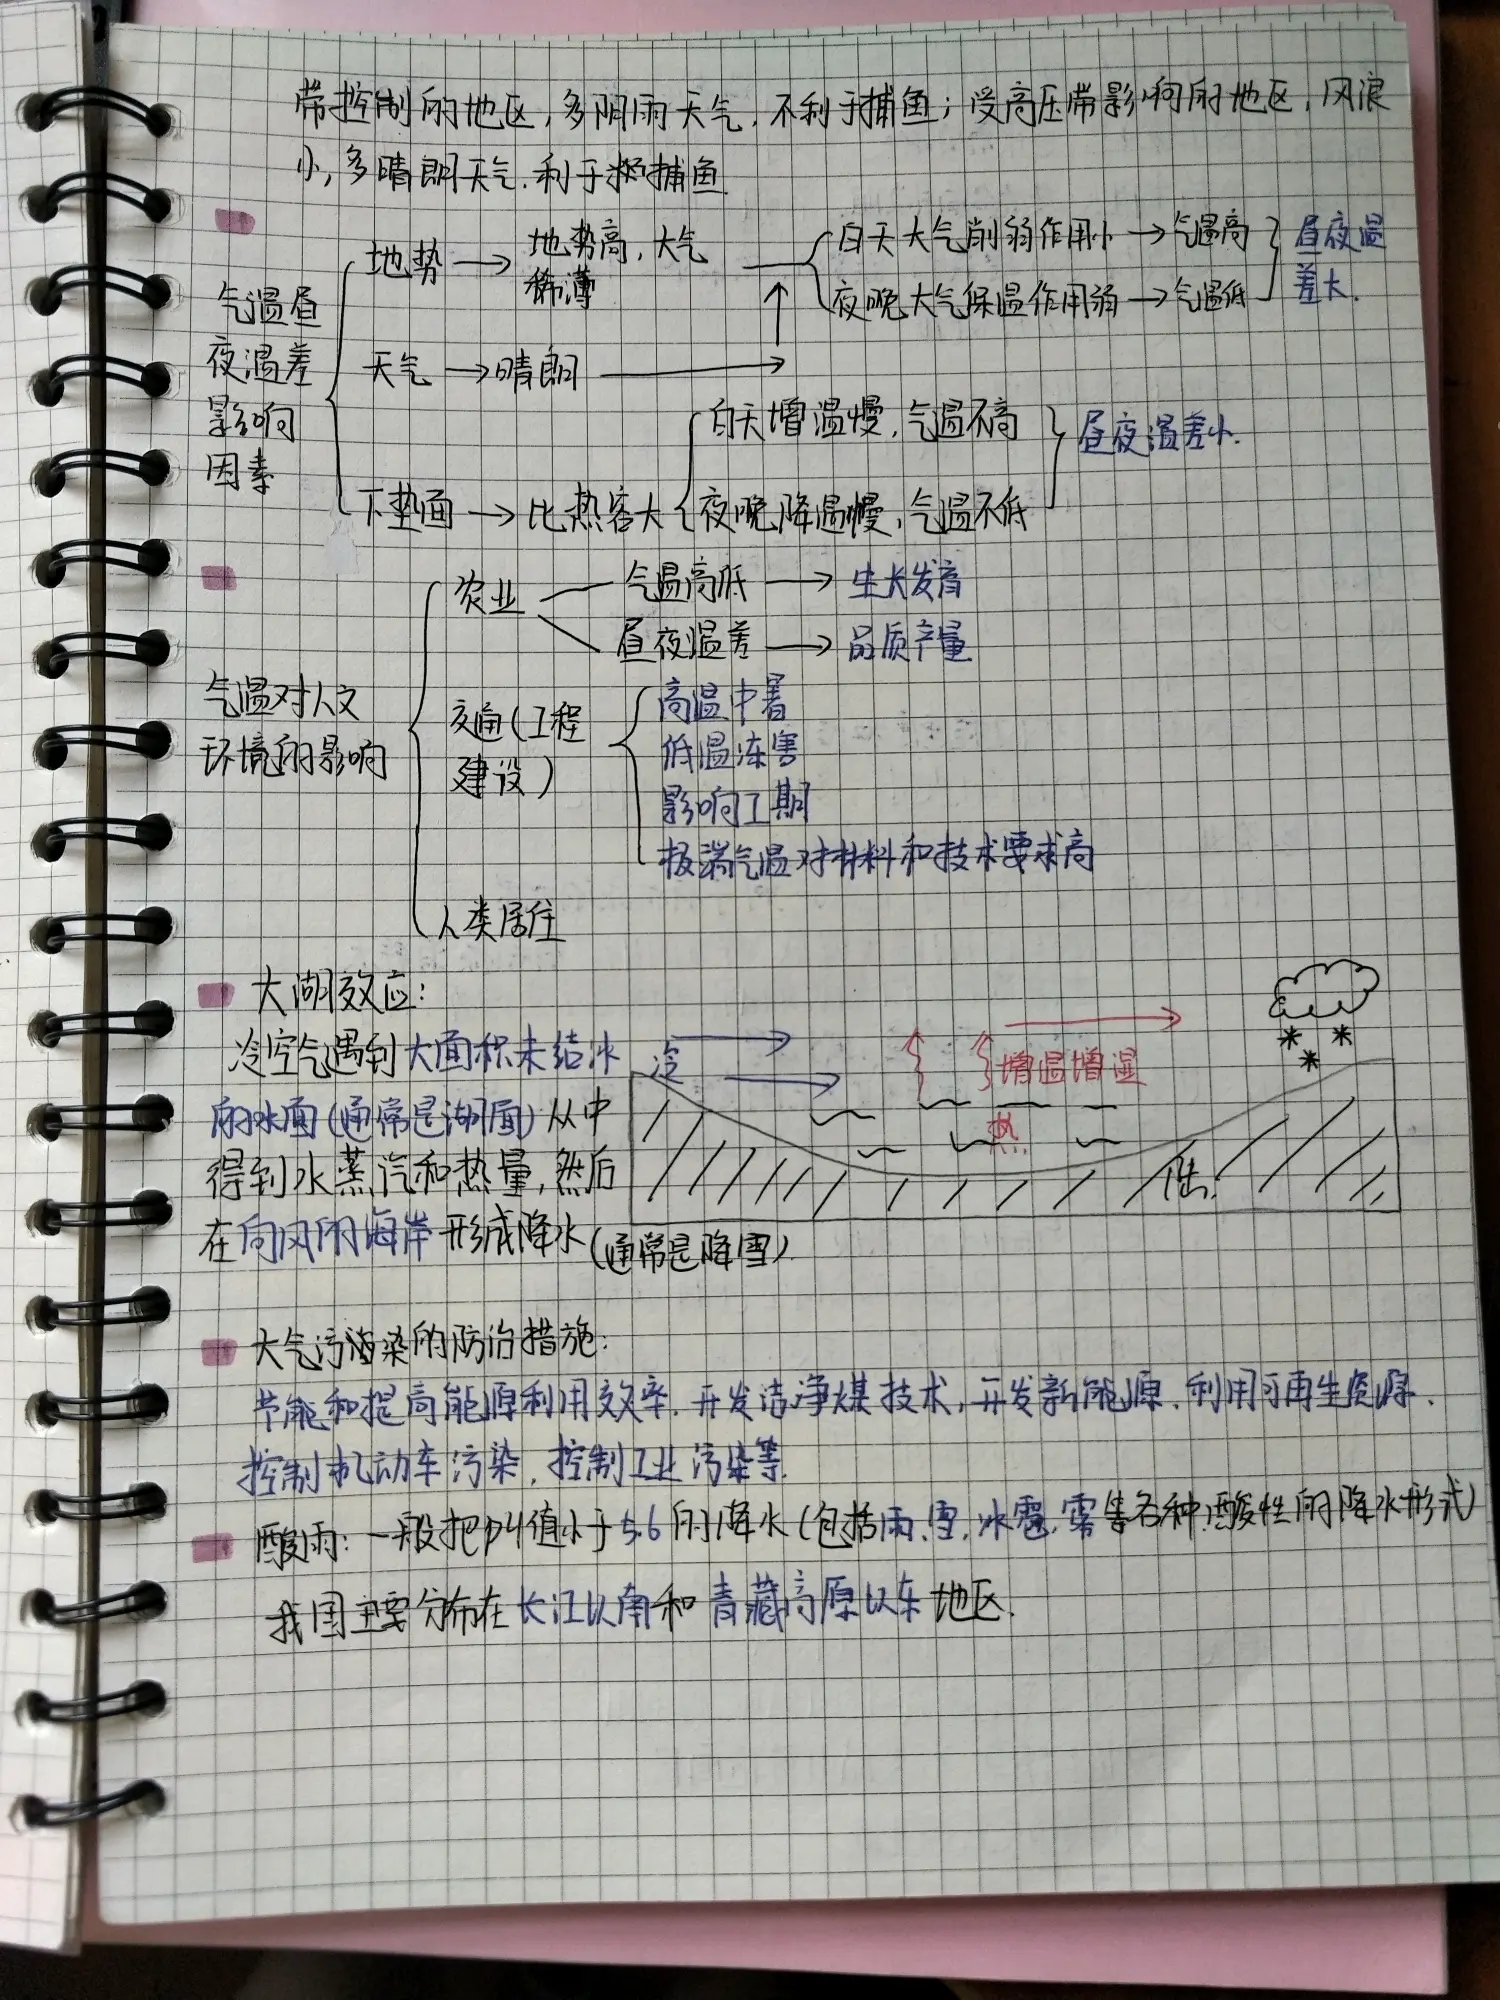 带控制的地区,多阴雨天气,不利于捕鱼;受高压带影响的地区,风浪
小,多晴朗天气.利于捕鱼
地势→地势高,大气
稀薄
白天大气削弱作用小→气温高
夜晚大气保温作用弱→气温低
昼夜温
差大.
气温昼
夜温差
影响
因素
天气→晴朗
下垫面→比热容大
白天增温慢,气温不高
夜晚降温慢,气温不低
昼夜温差小.
气温对人文
环境的影响
农业
气温高低→生长发育
昼夜温差→品质产量
交通(工程
建设)
高温中暑
低温冻害
影响工期
极端气温对材料和技术要求高
人类居住
大湖效应:
冷空气遇到大面积未结冰
的水面(通常是湖面)从中
得到水蒸汽和热量,然后
在向风的海岸形成降水(通常是降雪)
冷
增温增湿
热
陆.
大气污染的防治措施:
节能和提高能源利用效率.开发洁净煤技术,开发新能源.利用可再生资源.
控制机动车污染,控制工业污染等.
酸雨:一般把pH值小于5.6的降水(包括雨、雪,冰雹,雾等各种酸性的降水形式)
我国主要分布在长江以南和青藏高原以东地区.